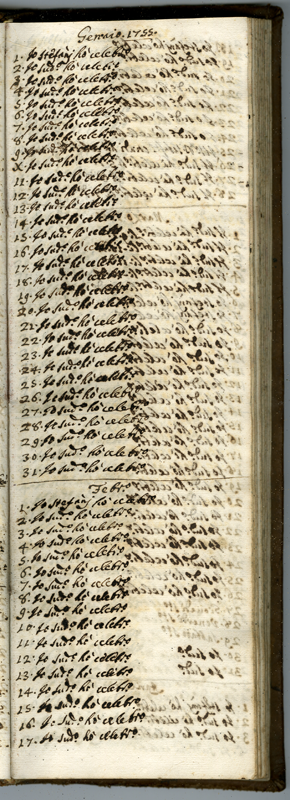 Gennaio. 1755.
1. Io Stefanj hò celebr.o
2. Io sud.o hò celebr.o
3. Io sud.o hò celebr.o
4. Io sud.o hò celebr.o
5. Io sud.o hò celebr.o
6. Io sud.o hò celebr.o
7. Io sud.o hò celebr.o
8. Io sud.o hò celebr.o
9. Io sud.o hò celebr.o
X. Io sud.o hò celebr.o
11. Io sud.o hò celebr.o
12. Io sud.o hò celebr.o
13. Io sud.o hò celebr.o
14. Io sud.o hò celebr.o
15. Io sud.o hò celebr.o
16. Io sud.o hò celebr.o
17. Io sud.o hò celebr.o
18. Io sud.o hò celebr.o
19. Io sud.o hò celebr.o
20. Io sud.o hò celebr.o
21. Io sud.o hò celebr.o
22. Io sud.o hò celebr.o
23. Io sud.o hò celebr.o
24. Io sud.o hò celebr.o
25. Io sud.o hò celebr.o
26. Io sud.o hò celebr.o
27. Io sud.o hò celebr.o
28. Io sud.o hò celebr.o
29. Io sud.o hò celebr.o
30. Io sud.o hò celebr.o
31. Io sud.o hò celebr.o
Febr.o
1. Io Stefanj hò celebr.o
2. Io sud.o hò celebr.o
3. Io sud.o hò celebr.o
4. Io sud.o hò celebr.o
5. Io sud.o hò celebr.o
6. Io sud.o hò celebr.o
7. Io sud.o hò celebr.o
8. Io sud.o hò celebr.o
9. Io sud.o hò celebr.o
10. Io sud.o hò celebr.o
11. Io sud.o hò celebr.o
12. Io sud.o hò celebr.o
13. Io sud.o hò celebr.o
14. Io sud.o hò celebr.o
15. Io sud.o hò celebr.o
16. Io sud.o hò celebr.o
17. Io sud.o hò celebr.o